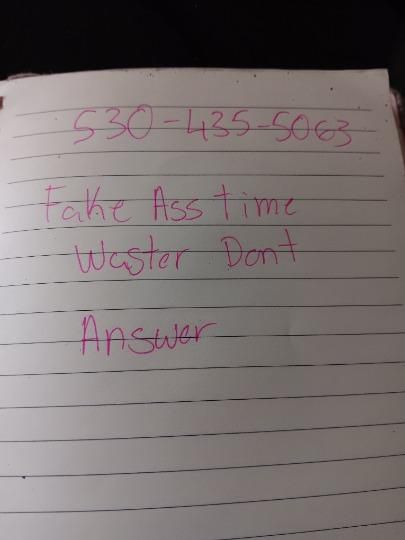 530-435-5063
Fake Ass time
Waster Dont
Answer